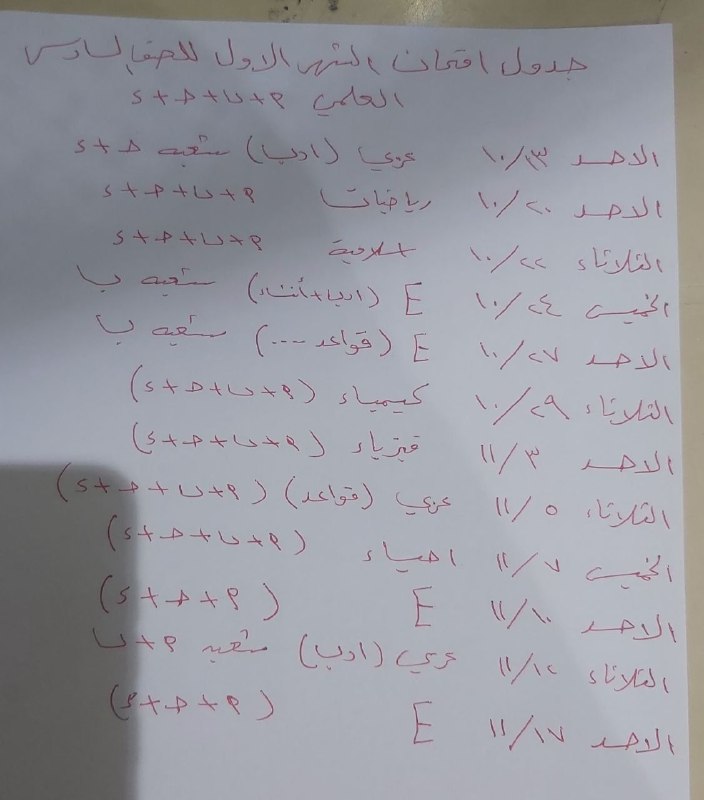 جدول امتحان الشهر الاول للصف السادس
العلمي أ+ب+ج+د
الاحد ١٠/١٣ عربي (ادب) شعبه ج+د
الاحد ١٠/٢٠ رياضيات أ+ب+ج+د
الثلاثاء ١٠/٢٢ اسلامية أ+ب+ج+د
الخميس ١٠/٢٤ E (ادب+أنشاء) شعبه ب
الاحد ١٠/٢٧ E (قواعد ---) شعبه ب
الثلاثاء ١٠/٢٩ كيمياء (أ+ب+ج+د)
الاحد ١١/٣ فيزياء (أ+ب+ج+د)
الثلاثاء ١١/٥ عربي (قواعد) (أ+ب+ج+د)
الخميس ١١/٧ احياء (أ+ب+ج+د)
الاحد ١١/١٠ E (أ+ج+د)
الثلاثاء ١١/١٢ عربي (ادب) شعبه أ+ب
الاحد ١١/١٧ E (أ+ج+د)